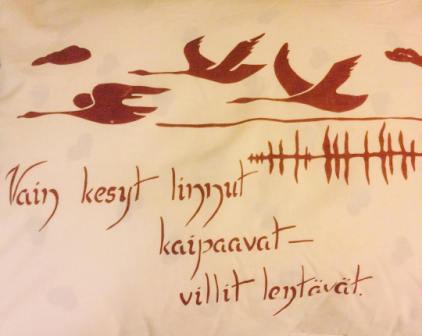 Vain kesyt linnut
kaipaavat–
villit lentävät.